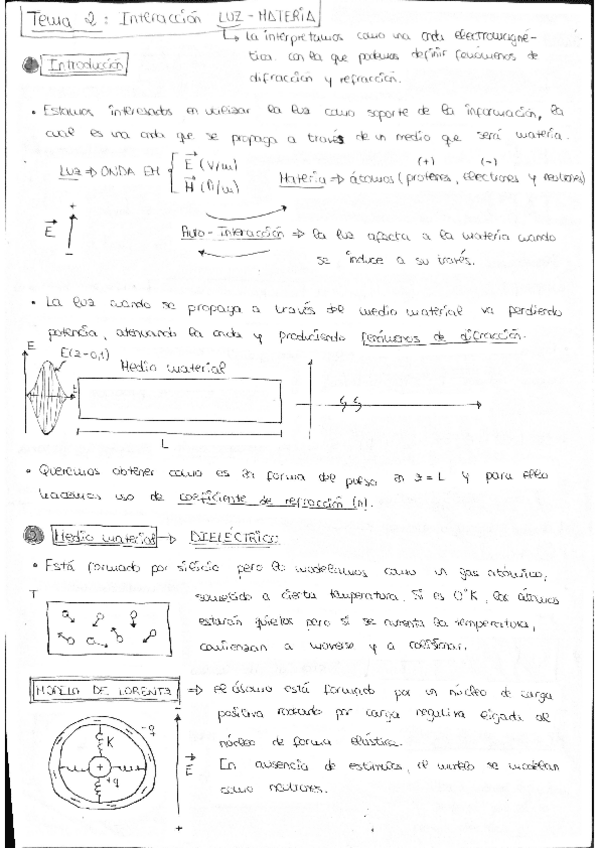 Tema 2: Interacción LUZ-MATERIA
↳ La interpretamos como una onda electromagné-
tica con la que podemos definir fenómenos de
difracción y refracción.
1 Introducción
• Estamos interesados en utilizar la luz como soporte de la información, la
cual es una onda que se propaga a través de un medio que será materia.
Luz ⇒ ONDA EM { E (V/m)
H (A/m)
Materia ⇒ átomos (protones, electrones y neutrones)
(+) (-)
E + -
Auto-Interacción ⇒ la luz afecta a la materia cuando
se induce a su través.
• La luz cuando se propaga a través del medio material va perdiendo
potencia, atenuando la onda y produciendo fenómenos de difracción.
E E(z=0,t) Medio material
L
• Queremos obtener como es la forma del pulso en z=L y para ello
hacemos uso de coeficiente de refracción (n).
2 Medio material → DIELÉCTRICO:
• Está formado por silicio pero lo modelamos como un gas atómico,
T
sometido a cierta temperatura. Si es 0°K, los átomos
estarán quietos pero si se aumenta la temperatura,
comienzan a moverse y a colisionar.
MODELO DE LORENTZ ⇒ el átomo está formado por un núcleo de carga
positiva rodeado por carga negativa ligada al
núcleo de forma elástica.
En ausencia de estímulos, el
como
-q K + +q
- E +